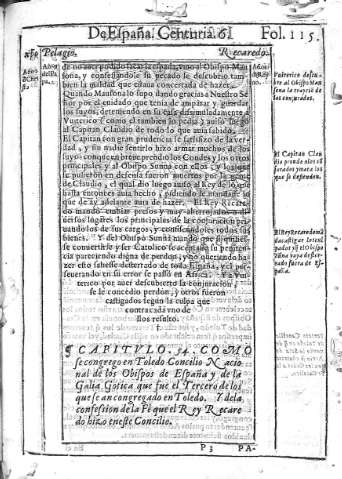 De España. Centuria. 61 Fol. 115.
Pelagio. Recaredo.
de no auer podido sacar la espada, vino al Obispo Mau-
sona, y confessandole su pecado le descubrio tam-
bien la maldad que estaua concertada de hazer.
Quando Mausona lo supo dando gracias a Nuestro Se
ñor por el cuidado que tenia de amparar y guardar
los suyos, deteniendo en su casa
Vuiterico
al Capitan Claudio de todo lo que auia sabido.
El Capitan con gran prudencia se satisfizo de la ver-
dad, y sin nadie sentirlo hizo armar muchos de los
suyos con que prendio los Condes, y los otros
principales y al Obispo Sunna con ellos
se pusieron en defensa fueron muertos por la gente
de Claudio, el qual dio luego auiso al Rey de lo que
hasta entonces auia hecho, pidiendo le mandasse lo
que de ay adelante auia de hazer. El Rey Recare-
do mando embiar presos y muy
dos lugares los principales de la conjuracion priuan
dolos de sus cargos, y confiscandoles todos sus
bienes. Y del Obispo Sunna mando que si quisies-
se conuertirse y ser Catholico se aceptasse su peniten-
cia pareciendo digna de perdon, y no queriendo ha-
zer esto fuesse desterrado de toda España, y el per-
seuerando en su error se passó en Africa. Y a Vui-
terico por auer descubierto la conjuracion,
se le concedio perdon, y otros fueron
castigados segun la culpa que
contra cada vno de
llos resulto.
¶ CAPITVLO. 54. COMO
se congrego en Toledo Concilio Nacio
nal de los Obispos de España y de la
Galia Gotica que fue el Tercero de los
que se an congregado en Toledo. Y de la
confession de la Fè que el Rey Recare
do hizo en este Concilio.
Vuiterico descu
bre al Obispo Mau
sona la traycion de
los conjurados.
El Capitan Clau
dio prende a los cō
jurados y mata los
que se defienden.
El Rey Recaredo mā
da castigar los cō
jurados y el Obispo
Sunna va desterra
do fuera de Es-
paña.
P 3 PA-